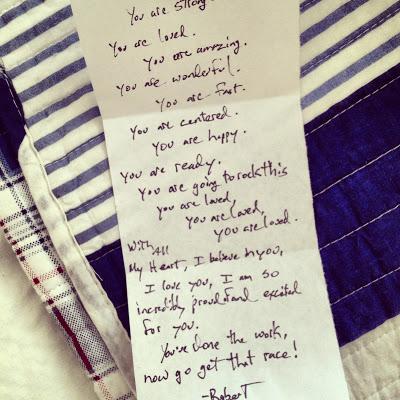 You are strong.
You are loved.
You are amazing.
You are wonderful.
You are fast.
You are centered.
You are happy.
You are ready.
You are going to rock this
you are loved,
you are loved,
you are loved.
With All
My Heart, I believe in you,
I love you, I am so
incredibly proud of and excited
for you.
You've done the work,
now go get that race!
-Robert